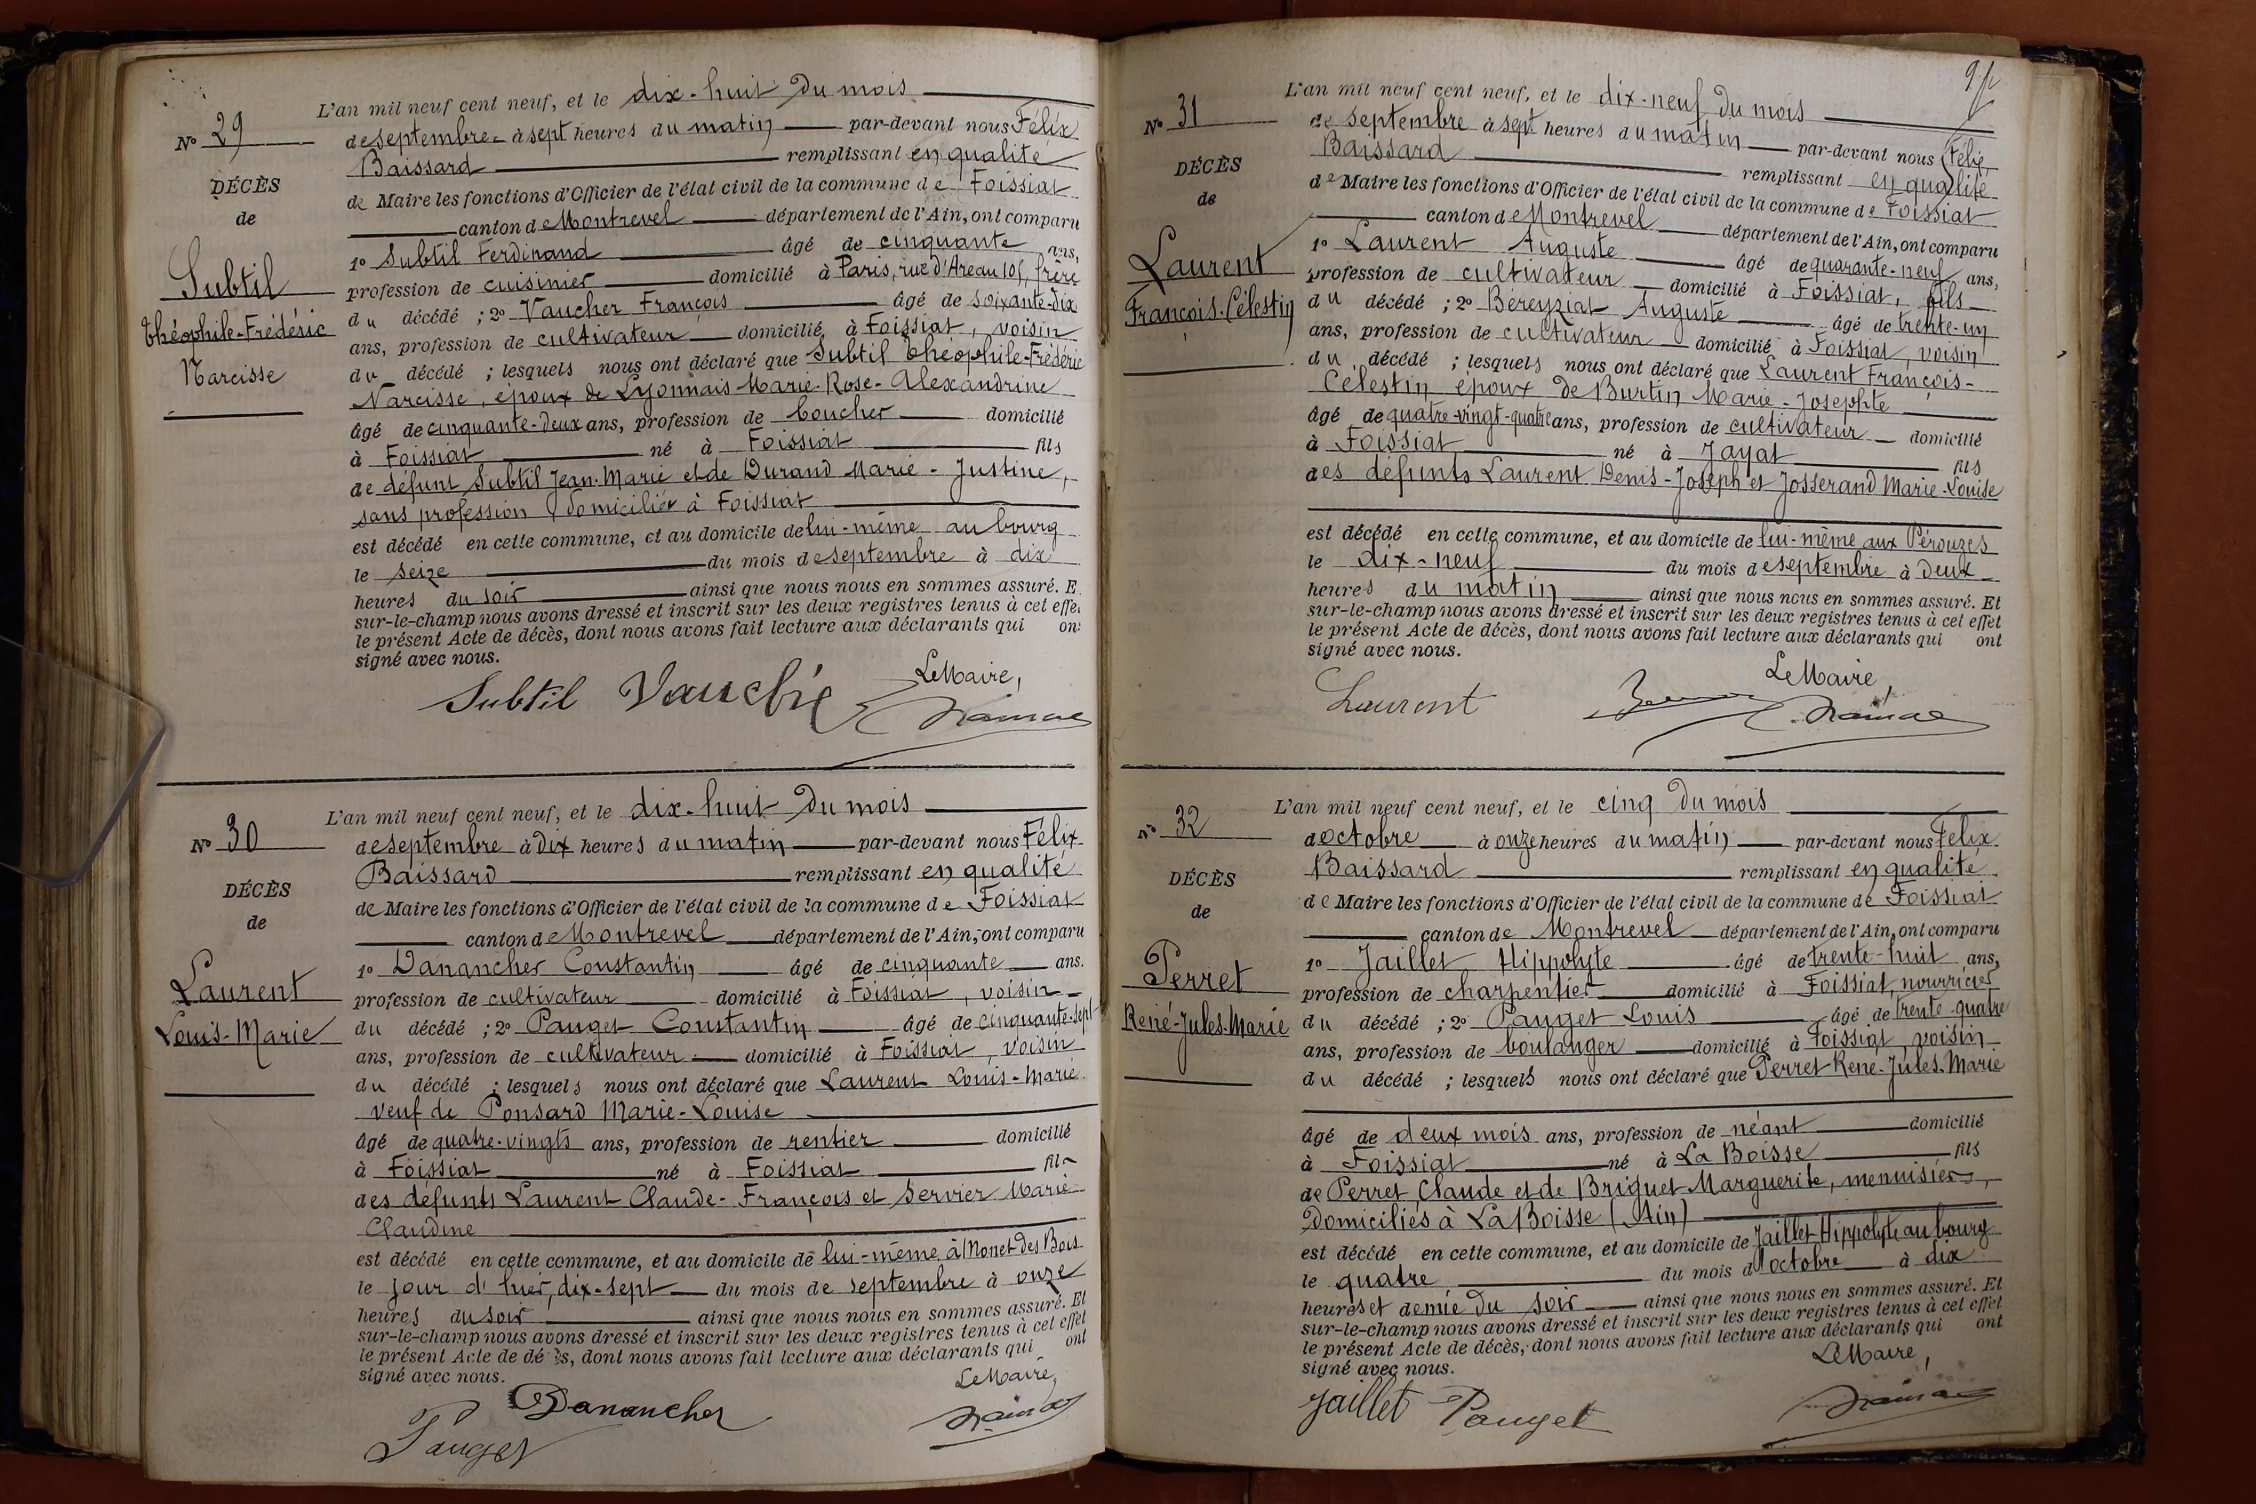 L'an mil neuf cent neuf, et le dix-huit du mois
No 29
de septembre à sept heures du matin par-devant nous Félix
Baissard remplissant en qualité
DÉCÈS
de Maire les fonctions d'Officier de l'état civil de la commune de Foissiat
de
canton de Montrevel département de l'Ain, ont comparu
1o Subtil Ferdinand âgé de cinquante ans,
Subtil
profession de cuisinier domicilié à Paris, rue d' frère
Théophile-Frédéric
du décédé ; 2o Vaucher François âgé de soixante-dix
ans, profession de cultivateur domicilié à Foissiat, voisin
Narcisse
du décédé ; lesquels nous ont déclaré que Subtil Théophile-Frédéric
Narcisse, époux de Lyonnais Marie-Rose-Alexandrine
âgé de cinquante-deux ans, profession de boucher domicilié
à Foissiat né à Foissiat fils
de défunt Subtil Jean-Marie et de Durand Marie-Justine,
sans profession, domiciliée à Foissiat
est décédé en cette commune, et au domicile de lui-même au bourg
le seize du mois de septembre à dix
heures du soir ainsi que nous nous en sommes assuré. E
sur-le-champ nous avons dressé et inscrit sur les deux registres tenus à cet effe
le présent Acte de décès, dont nous avons fait lecture aux déclarants qui on
signé avec nous.
Le Maire,
Subtil Vauché
L'an mil neuf cent neuf, et le dix-huit du mois
No 30
de septembre à dix heures du matin par-devant nous Félix
Baissard remplissant en qualité
DÉCÈS
de Maire les fonctions d'Officier de l'état civil de la commune de Foissiat
de
canton de Montrevel département de l'Ain, ont comparu
1o Danancher Constantin âgé de cinquante ans.
Laurent
profession de cultivateur domicilié à Foissiat, voisin
Louis-Marie
du décédé ; 2o Pauget Constantin âgé de cinquante-sept
ans, profession de cultivateur domicilié à Foissiat, voisin
du décédé ; lesquels nous ont déclaré que Laurent Louis-Marie
veuf de Ponsard Marie-Louise
âgé de quatre-vingts ans, profession de rentier domicilié
à Foissiat né à Foissiat fils
des défunts Laurent Claude-François et Servier Marie
Claudine
est décédé en cette commune, et au domicile de lui-même à Monet des Bois
le jour d'hier, dix-sept du mois de septembre à onze
heures du soir ainsi que nous nous en sommes assuré. Et
sur-le-champ nous avons dressé et inscrit sur les deux registres tenus à cet effet
le présent Acte de décès, dont nous avons fait lecture aux déclarants qui ont
signé avec nous.
Le Maire,
Danancher
Pauget
L'an mil neuf cent neuf, et le dix-neuf du mois
No 31
de septembre à sept heures du matin par-devant nous Félix
Baissard remplissant en qualité
DÉCÈS
de Maire les fonctions d'Officier de l'état civil de la commune de Foissiat
de
canton de Montrevel département de l'Ain, ont comparu
1o Laurent Auguste âgé de quarante-neuf ans,
Laurent
profession de cultivateur domicilié à Foissiat, fils
François-Célestin
du décédé ; 2o Béreyziat Auguste âgé de trente-un
ans, profession de cultivateur domicilié à Foissiat, voisin
du décédé ; lesquels nous ont déclaré que Laurent François-
Célestin époux de Burtin Marie-Josephte
âgé de quatre-vingt-quatre ans, profession de cultivateur domicilié
à Foissiat né à Jayat fils
des défunts Laurent Denis-Joseph et Josserand Marie-Louise
est décédé en cette commune, et au domicile de lui-même aux Pérouzes
le dix-neuf du mois de septembre à deux
heures du matin ainsi que nous nous en sommes assuré. Et
sur-le-champ nous avons dressé et inscrit sur les deux registres tenus à cet effet
le présent Acte de décès, dont nous avons fait lecture aux déclarants qui ont
signé avec nous.
Le Maire,
Laurent
L'an mil neuf cent neuf, et le cinq du mois
No 32
d'octobre à onze heures du matin par-devant nous Félix
Baissard remplissant en qualité
DÉCÈS
de Maire les fonctions d'Officier de l'état civil de la commune de Foissiat
de
canton de Montrevel département de l'Ain, ont comparu
1o Jaillet Hippolyte âgé de trente-huit ans,
Perret
profession de charpentier domicilié à Foissiat, nourricier
René-Jules-Marie
du décédé ; 2o Pauget Louis âgé de trente-quatre
ans, profession de boulanger domicilié à Foissiat, voisin
du décédé ; lesquels nous ont déclaré que Perret René-Jules-Marie
âgé de deux mois ans, profession de néant domicilié
à Foissiat né à La Boisse fils
de Perret Claude et de Briguet Marguerite, menuisiers,
domiciliés à La Boisse (Ain)
est décédé en cette commune, et au domicile de Jaillet Hippolyte au bourg
le quatre du mois d'octobre à dix
heures et demie du soir ainsi que nous nous en sommes assuré. Et
sur-le-champ nous avons dressé et inscrit sur les deux registres tenus à cet effet
le présent Acte de décès, dont nous avons fait lecture aux déclarants qui ont
signé avec nous.
Le Maire,
Jaillet Pauget